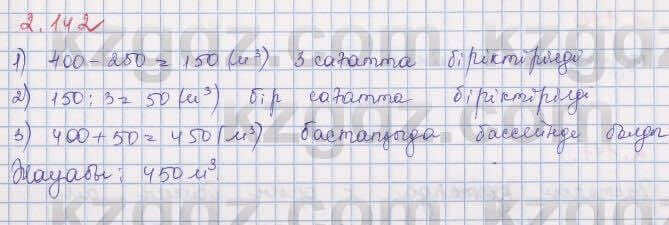 2.142
1) 400 - 250 = 150 (м³) 3 сағатта біріктірілді
2) 150 : 3 = 50 (м³) бір сағатта біріктірілді
3) 400 + 50 = 450 (м³) бастапқыда бассейнде болды
Жауабы: 450 м³.